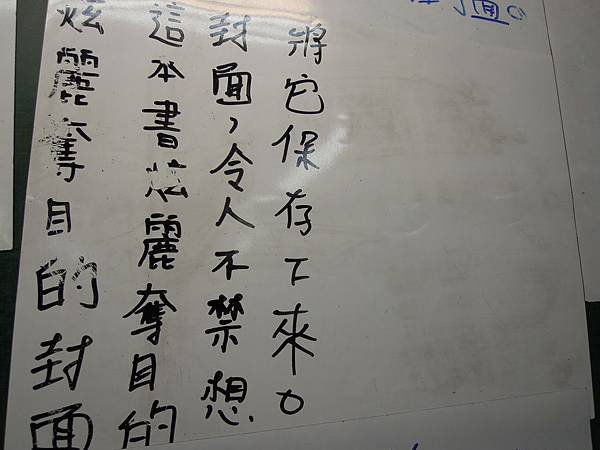 炫麗奪目的封面
這本書炫麗奪目的
封面，令人不禁想
將它保存下來。